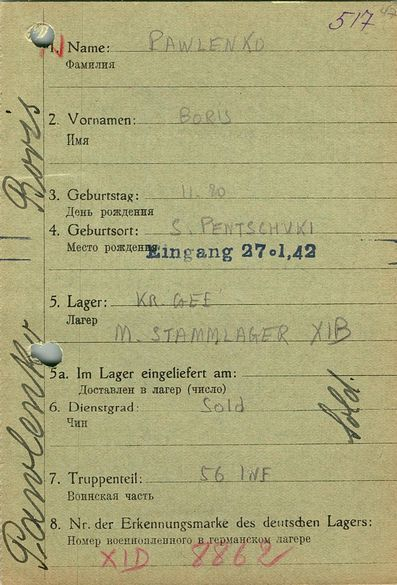 517 47
1. Name: PAWLENKO
Фамилия
2. Vornamen: BORIS
Имя
3. Geburtstag: 11.20
День рождения
4. Geburtsort: S. PENTSCHUKI
Место рождения
Eingang 27.1,42
5. Lager: KR. GEF
Лагер
M. STAMMLAGER XIB
5a. Im Lager eingeliefert am:
Доставлен в лагер (число)
6. Dienstgrad: Sold
Чин
7. Truppenteil: 56 INF
Воинская часть
8. Nr. der Erkennungsmarke des deutschen Lagers:
Номер военнопленного в германском лагере
XID 8862
Pawlenko Boris
Sold.